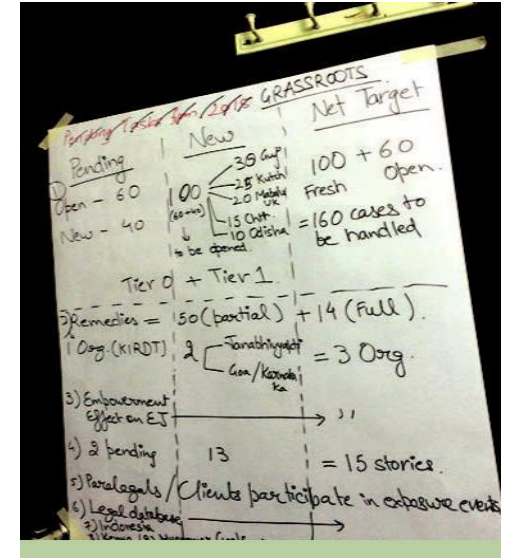 Pending Tasks Jan/2018 GRASSROOTS
Pending | New | Net Target
1) Open - 60
New - 40
100
(60+40)
↓
to be opened.
35 Guj
25 Kutch
20
15 Cht.
10 Odisha
100 + 60
Fresh Open.
= 160 cases to
be handled
Tier 0 + Tier 1
2) Remedies = 50 (partial) + 14 (Full).
1 Org. (KIRDT) 2
Goa/Karnata
ka
= 3 Org.
3) Empowerment
Effect on EJ → "
4) 2 pending 13 = 15 stories.
5) Paralegals / Clients participate in exposure events
6) Legal database →
7) Indonesia